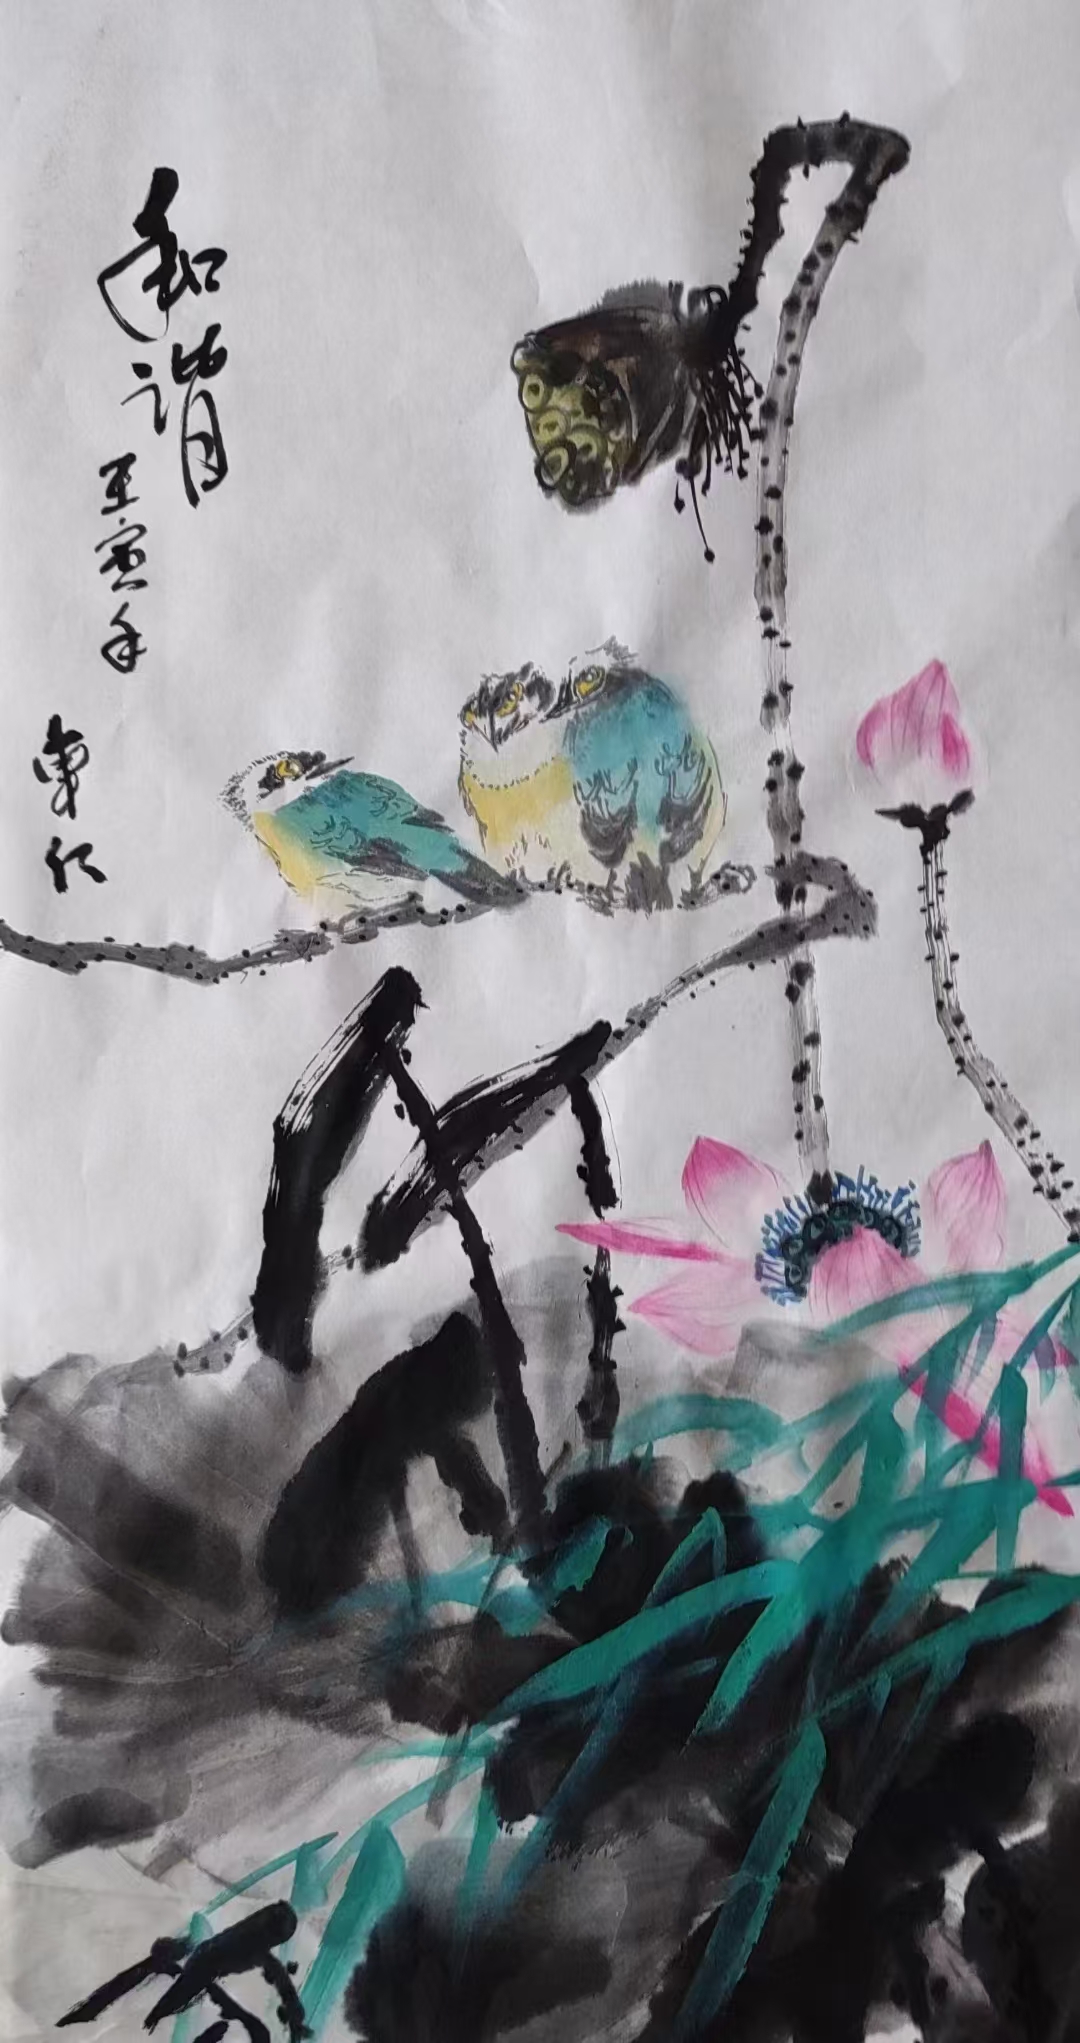 和谐
壬寅年
东仁